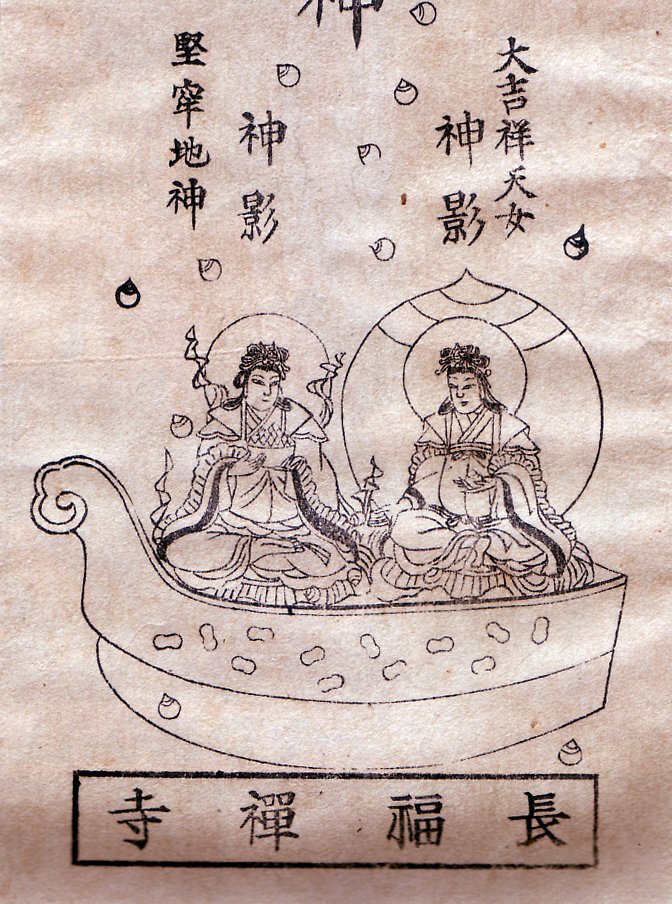 神
大吉祥天女
神影
神影
堅牢地神
長福禪寺